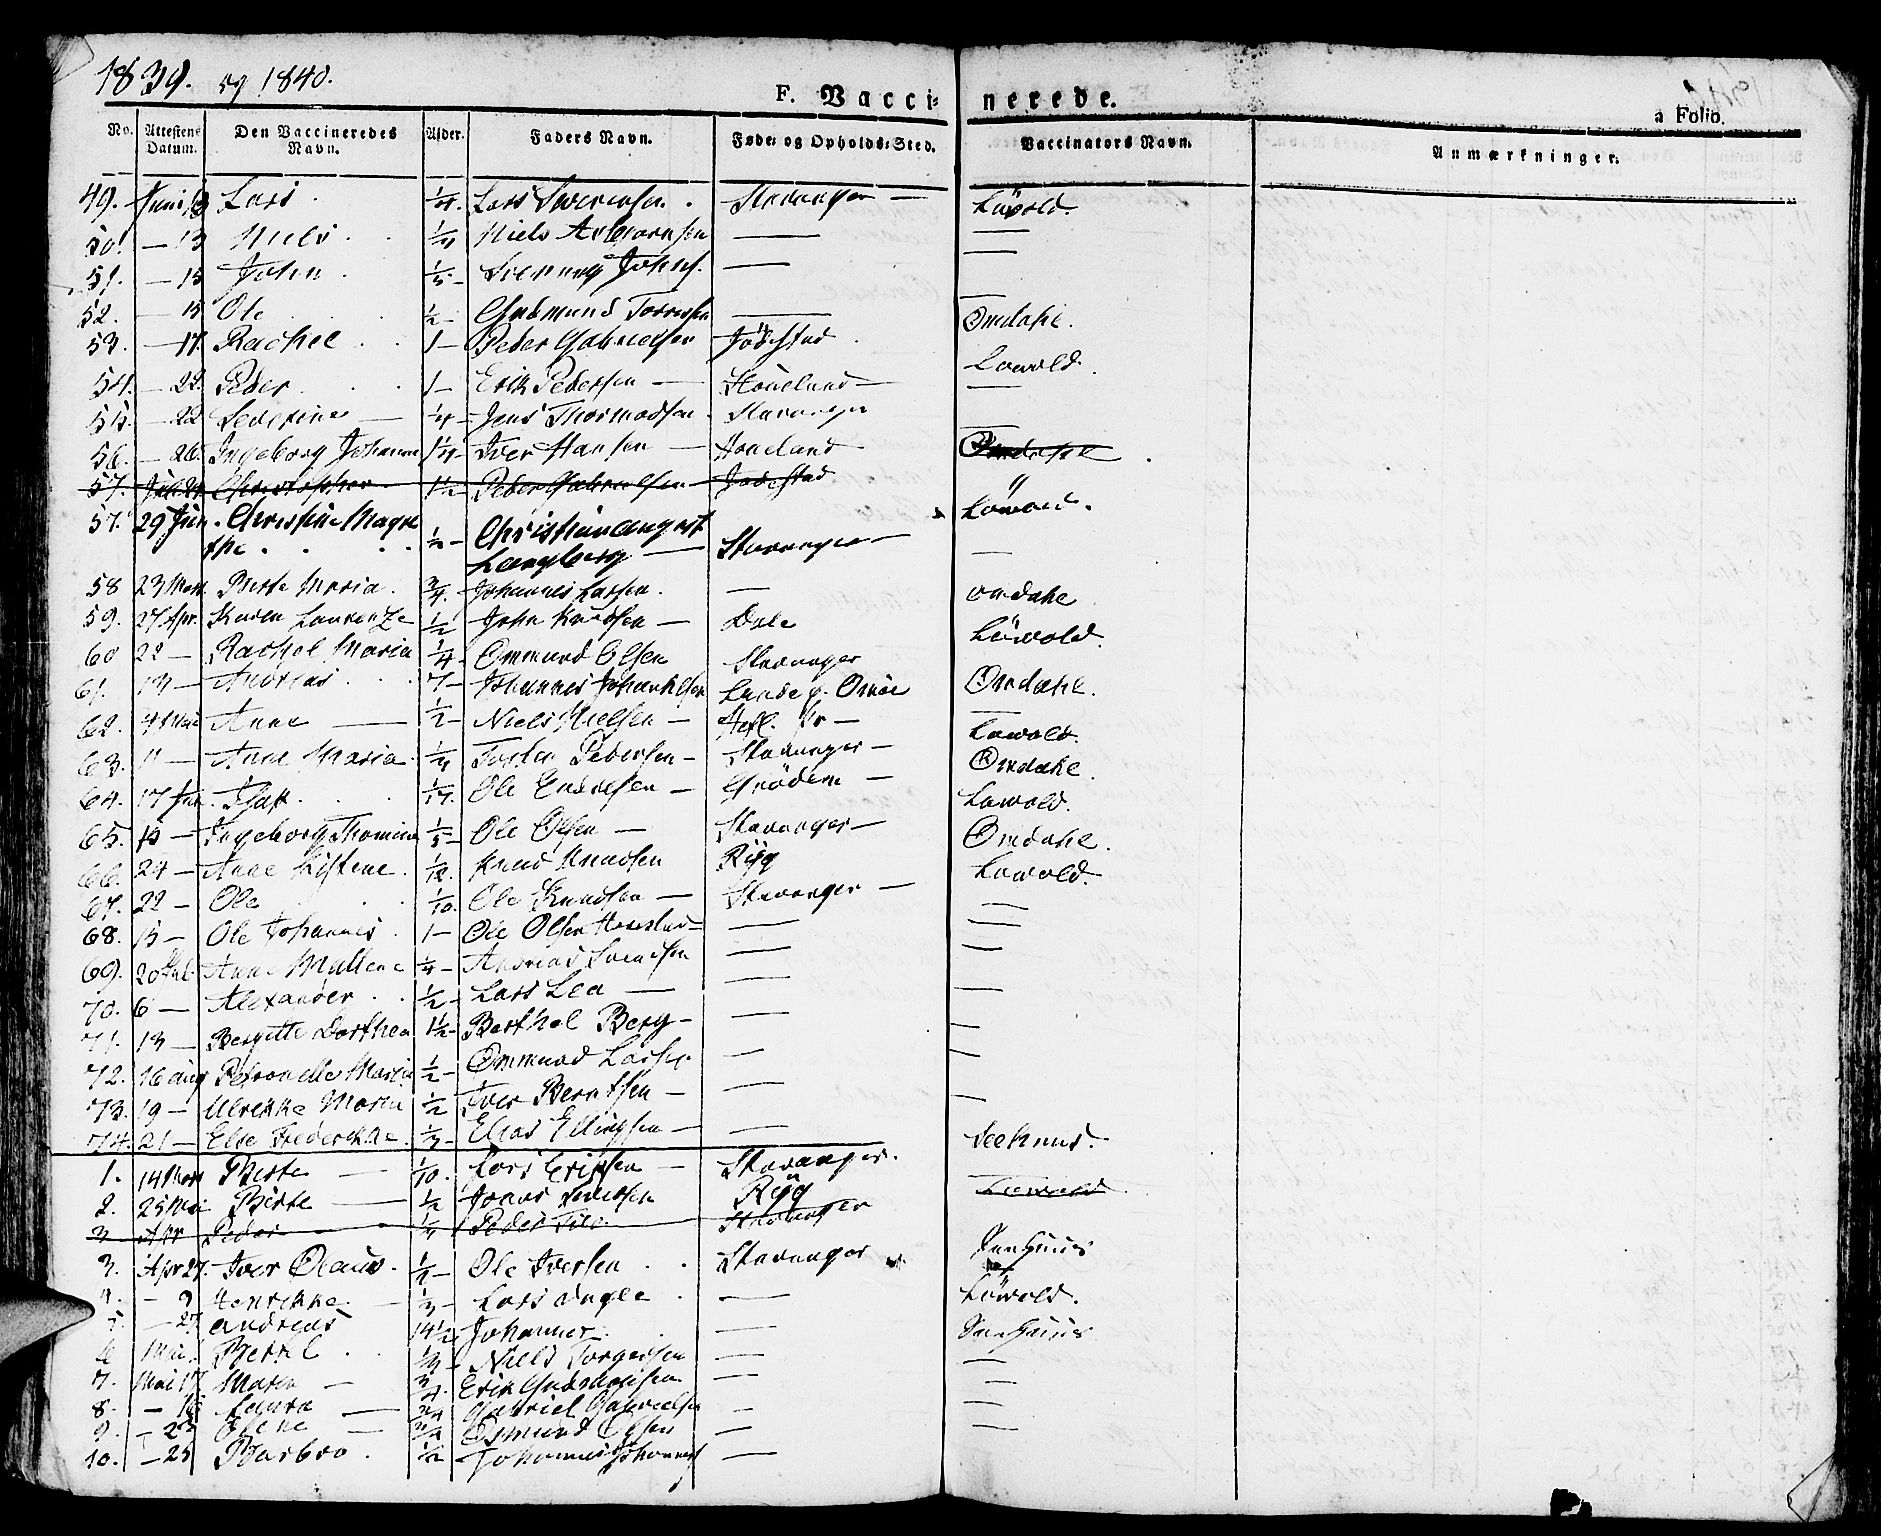 1839. og 1840.
F. Vacci= nerede.
a Folio.
No. Attestens Datum. Den Vaccineredes Navn. Alder. Faders Navn. Føde= og Opholds=Sted. Vaccinators Navn. Anmærkninger.
49. Juni 13 Lars. 1/4. Lars Sverensen. Stavanger — Löwold.
50. — 13 Niels 1/4 Niels Asbiørnsen — —
51. — 15 John 1/5 - Johns. — —
52. — 15 Ole 1/2 - Gudmund Torresen — —
53. — 17. Rachel 1 - Peder Gabrielsen Jödestad Omdahl.
54. — 22. Peder 1 - Erik Pedersen — Houeland — Lowold.
55. — 22 Severine — 1/4 - Jens Thormodsen. Stavanger —
56. — 26. Ingeborg Johanne 1/4 - Iver Hansen — Houeland —
57. Juli 24 Christopher 1 1/2 Peder Gabrielsen Jodestad Omdahl
57. 29 Jun. Christine Magrethe 1/2 - Christian August Langberg — Stavanger — Löwold.
58 23 Mart. Berte Maria. 3/4. Johannes Larsen. — —
59. 27 Apr. Karen Laurenze 1/2 John Knudsen — Dale Omdahl
60 22 — Rachel Maria 1/4 - Ommund Olsen Stavanger Löwold.
61. 13 — Andreas 7 - Johannes Johannesen Lunde p. Omöe Omdahl.
62. 4 Mai Anne — 1/2 - Niels Nielsen — —
63. 11 — Anne Maria. 1/4 Tosten Pedersen — Stavanger — Lowold.
64. 17 Jun. 1/4. Ole Endresen — Grödem — Omdahl.
65. 10 — Ingeborg Thomine 1/5 - Ole Olsen — Stavanger — Lowold.
66. 24 — Anne Kistene. 1/12. Knud Knudsen Ryg Omdahl.
67. 22 — Ole 1/10. Ole Knudsen — Stavanger — Lowold.
68. 15 — Ole Johannes. 1 - Ole Olsen — — —
69. 20 Jul. Anne Mallene 1/4 - Andreas Svendsen — —
70. 6 — Alexander 1/2 - Lars Lea — — —
71. 13 — Bergitte Dorthea 1 1/2 - Berthel Berg — — —
72. 16 Aug Petronelle Maria 1/2 - Ommund Larsen — —
73. 19 — Ulrikke Maria 1/2 Iver Berntsen — — —
74. 21 — Else Frederikke. 1/3 - Elias Ellingsen — — —
1. 14 Mart Berte — 1/10. Lars Eriksen — Stavanger. Seehuus.
2. 25 Mai Berte — 1/2 Jonas Ryg
3 Apr Peder 1/4 Peder Stavanger Lowold
3. Apr 27. Iver Olaus. 1/2 - Ole Iversen Stavanger Seehuus
4. — 9 Henrikke. — 1/3 - Lars — Löwold.
5 — 27 Andreas 14 1/2 Johannes. — Seehuus
6 Mai. Bertel 1/3 - Niels Torgersen — —
7. Mai 17 Maren — 3/4. Erik — —
8. — 18 Laura — 3/4 Gabriel Gabrielsen — —
9. — 23 Olene — 3/4 Osmund Olsen — —
10. — 25 Barbro 1/2 Johannes Johannes —